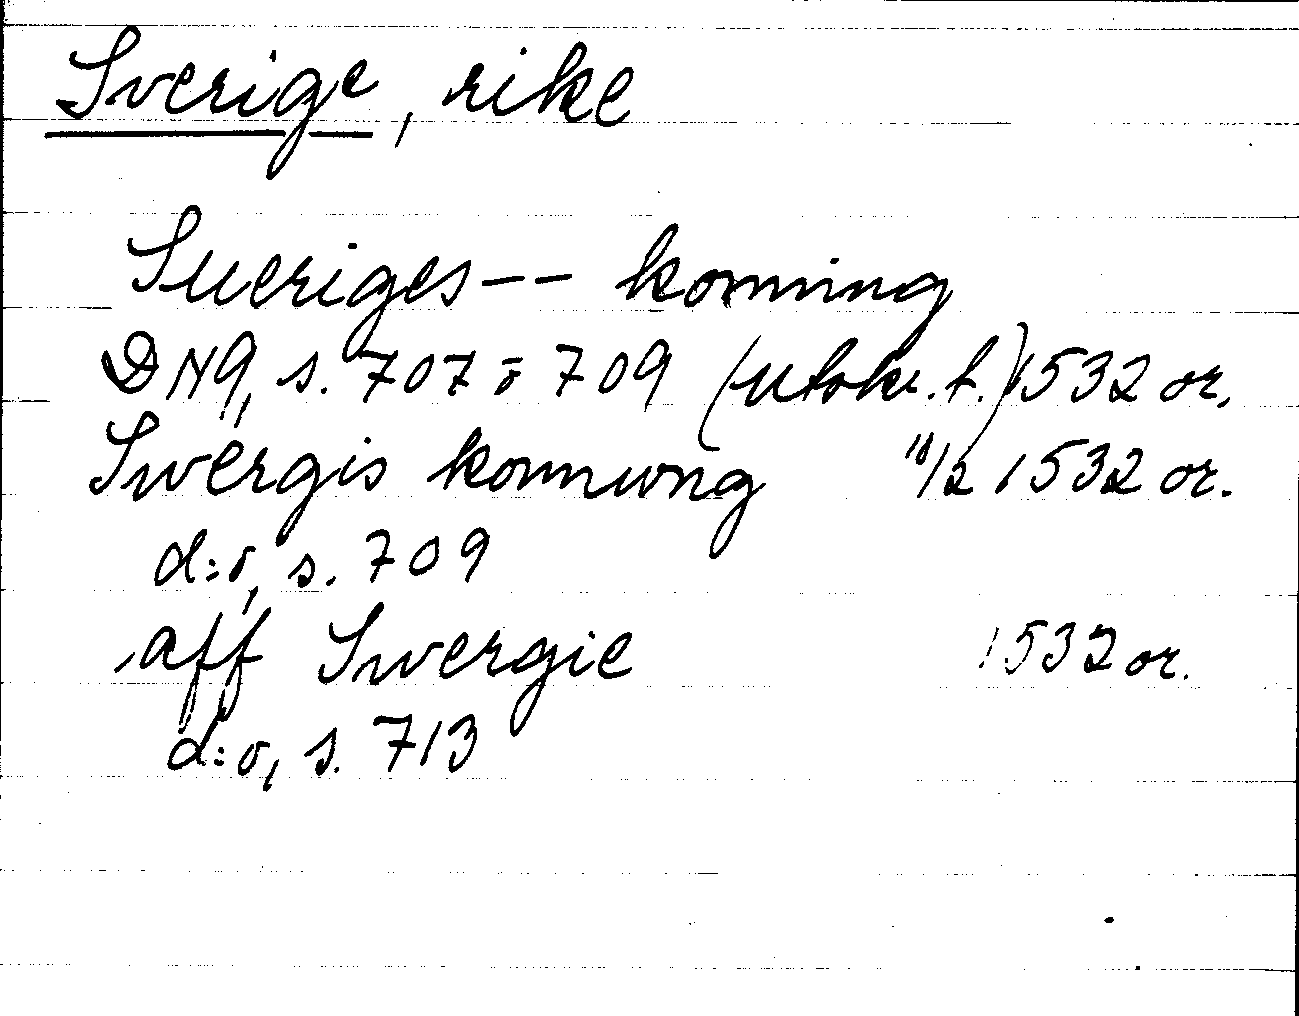 Sverige, rike
Sueriges -- konning
DN 9, s. 707 o 709 (utskr. f.) 1532 or.
Swergis konnung 18/2 1532 or.
d:o, s. 709
aff Swergie 1532 or.
d:o, s. 713